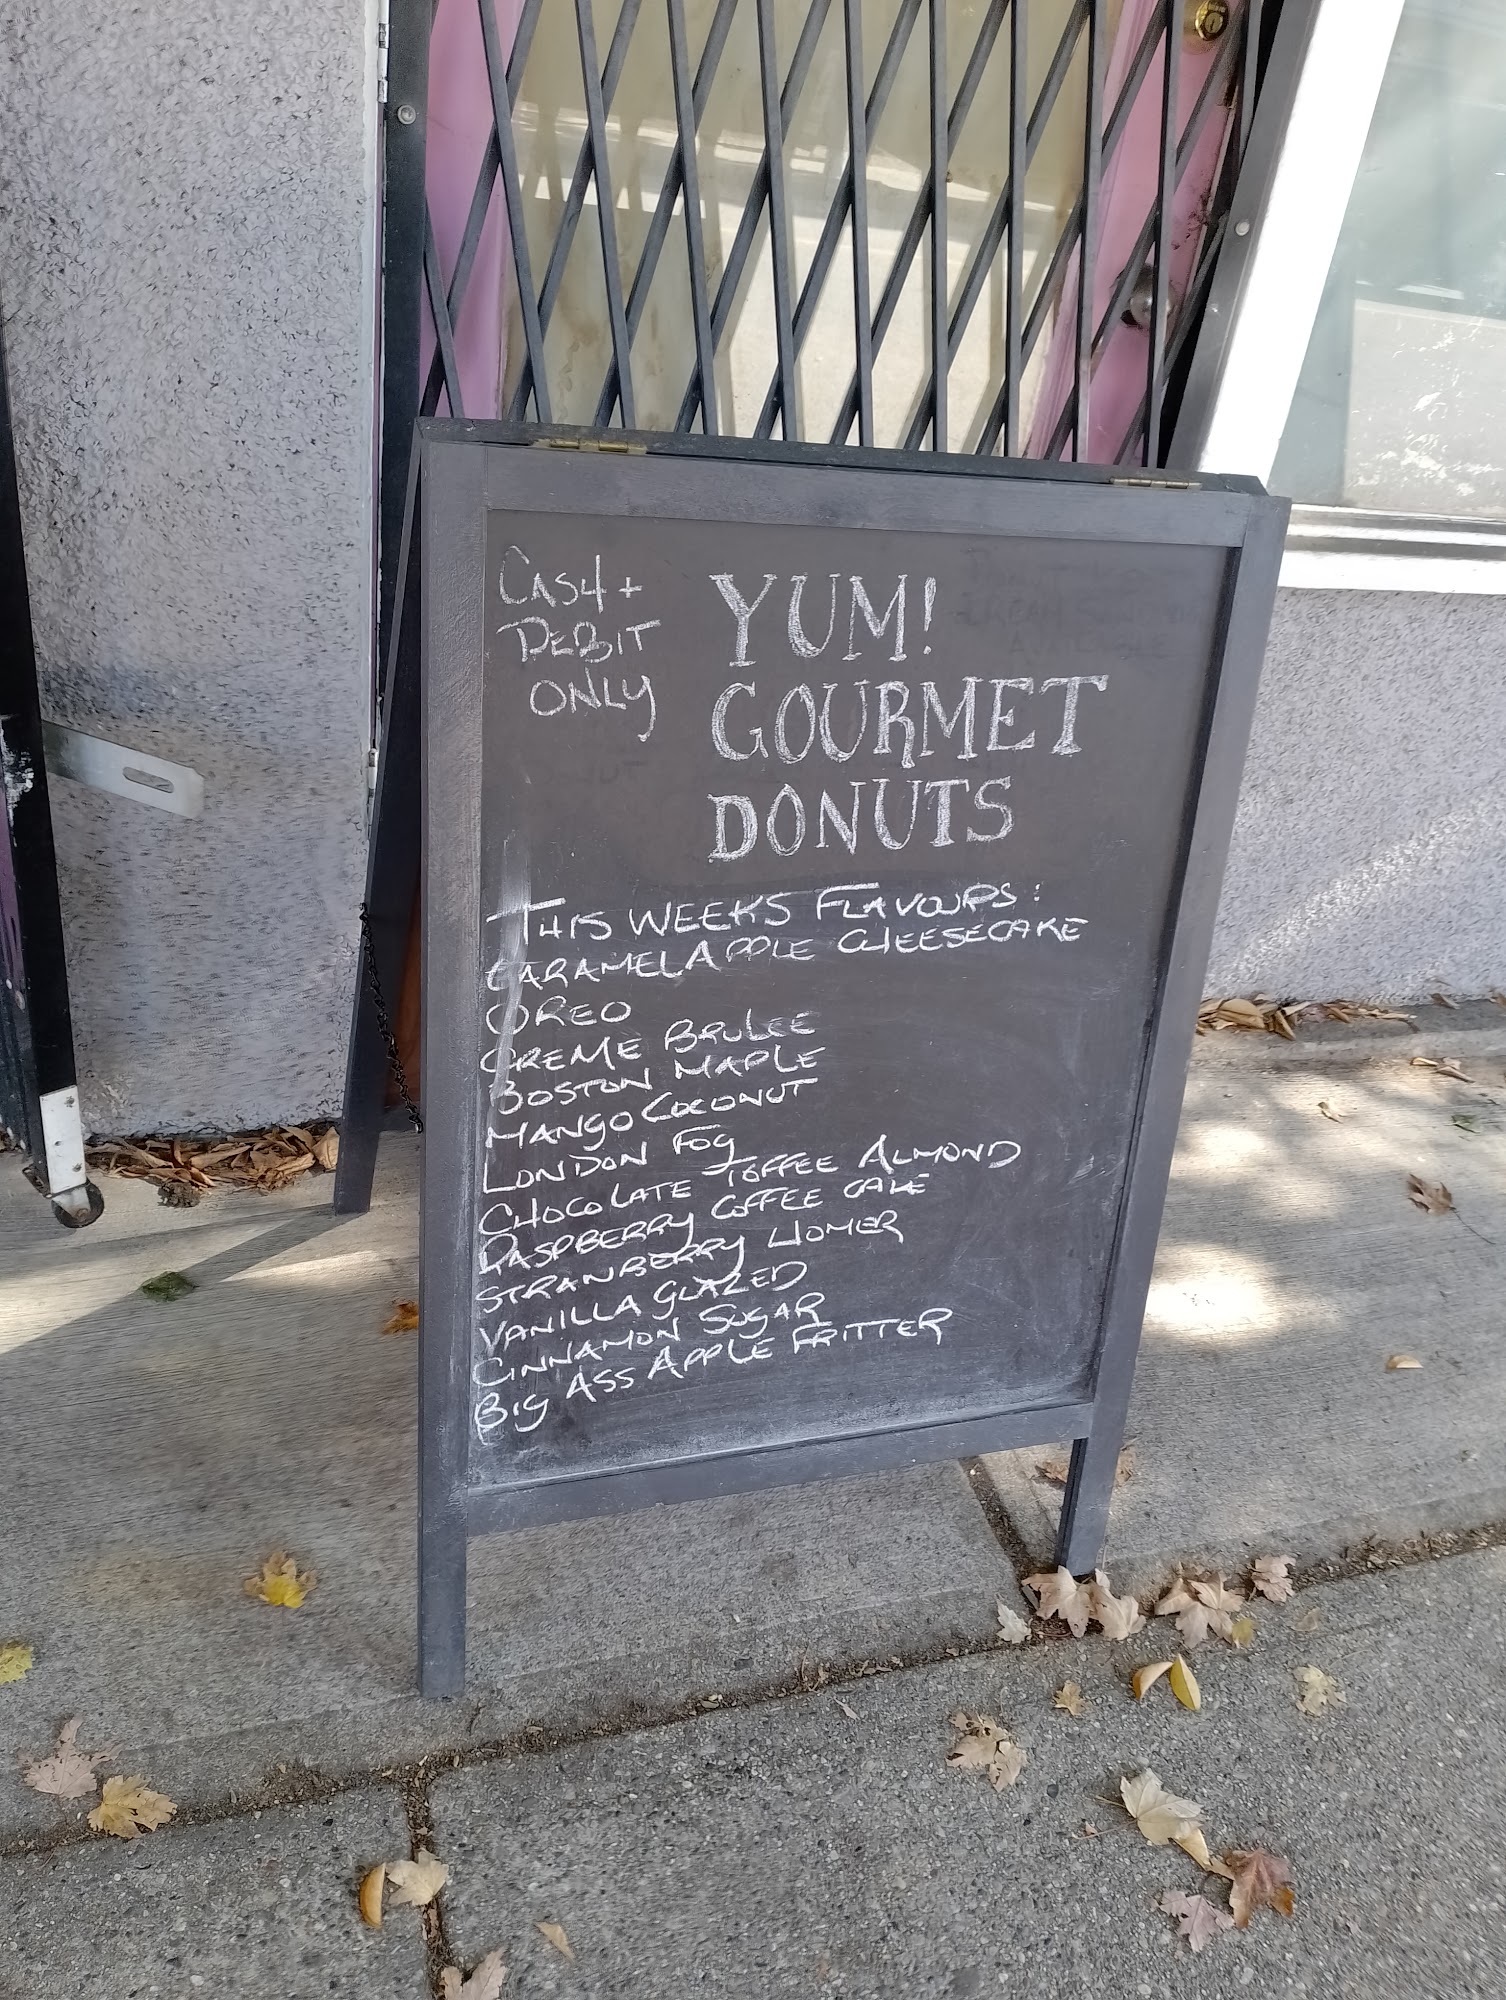 CASH +
DEBIT
ONLY
YUM!
GOURMET
DONUTS
THIS WEEKS FLAVOURS:
CARAMEL APPLE CHEESECAKE
OREO
CREME BRULEE
BOSTON MAPLE
MANGO COCONUT
LONDON FOG
CHOCOLATE TOFFEE ALMOND
RASPBERRY COFFEE CAKE
STRAWBERRY HOMER
VANILLA GLAZED
CINNAMON SUGAR
BIG ASS APPLE FRITTER